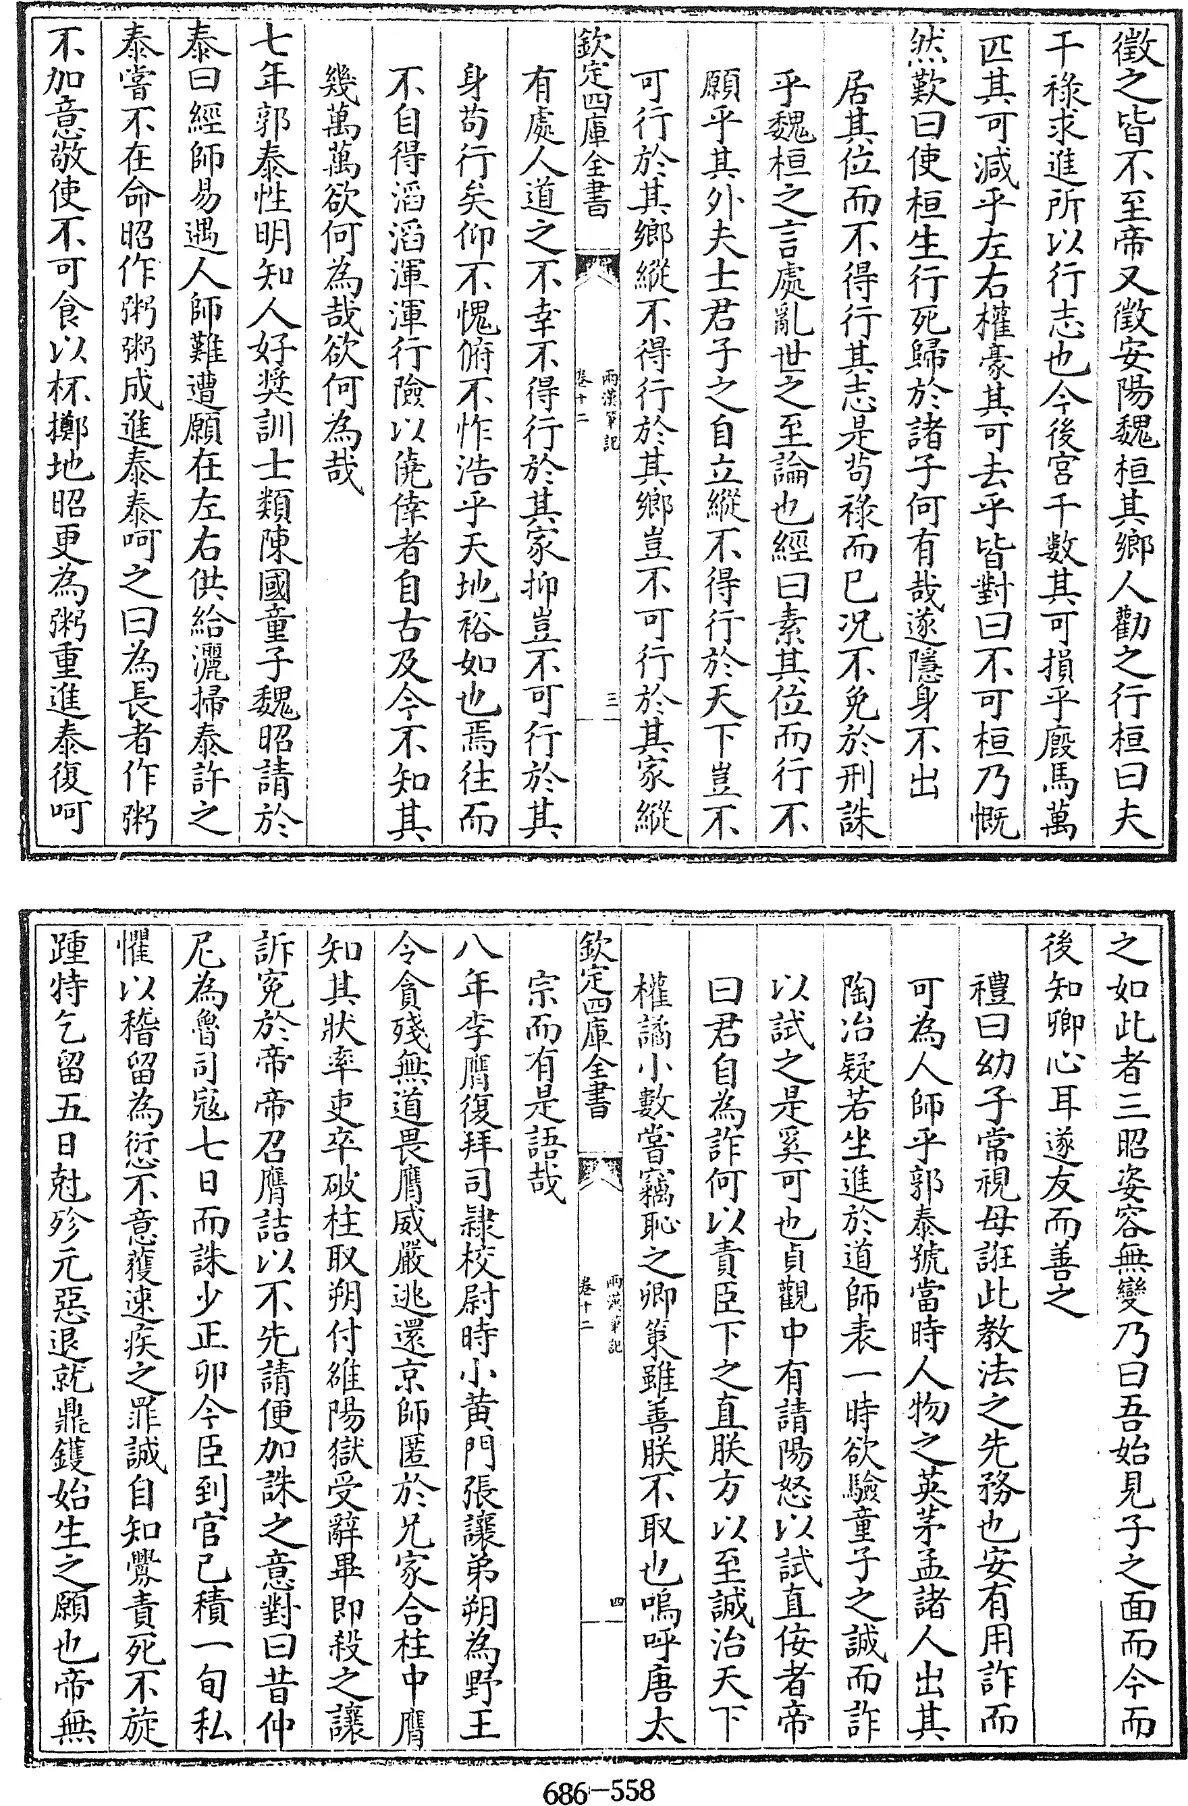 徵之皆不至帝又徵安陽魏桓其鄉人勸之行桓曰夫
干祿求進所以行志也今後宮千數其可損乎廄馬萬
匹其可減乎左右權豪其可去乎皆對曰不可桓乃慨
然歎曰使桓生行死歸於諸子何有哉遂隱身不出
居其位而不得行其志是苟祿而已況不免於刑誅
乎魏桓之言處亂世之至論也經曰素其位而行不
願乎其外夫士君子之自立縱不得行於天下豈不
可行於其鄉縱不得行於其鄉豈不可行於其家縱
欽定四庫全書
兩漢筆記
卷十二
三
有處人道之不幸不得行於其家抑豈不可行於其
身苟行矣仰不愧俯不怍浩乎天地裕如也焉往而
不自得滔滔渾渾行險以僥倖者自古及今不知其
幾萬萬欲何為哉欲何為哉
七年郭泰性明知人好獎訓士類陳國童子魏昭請於
泰曰經師易遇人師難遭願在左右供給灑掃泰許之
泰嘗不在命昭作粥粥成進泰泰呵之曰為長者作粥
不加意敬使不可食以杯擲地昭更為粥重進泰復呵
之如此者三昭姿容無變乃曰吾始見子之面而今而
後知卿心耳遂友而善之
禮曰幼子常視母誑此教法之先務也安有用詐而
可為人師乎郭泰號當時人物之英茅孟諸人出其
陶冶疑若坐進於道師表一時欲驗童子之誠而詐
以試之是奚可也貞觀中有請陽怒以試直佞者帝
曰君自為詐何以責臣下之直朕方以至誠治天下
權譎小數嘗竊恥之卿策雖善朕不取也嗚呼唐太
欽定四庫全書
兩漢筆記
卷十二
四
宗而有是語哉
八年李膺復拜司隸校尉時小黃門張讓弟朔為野王
令貪殘無道畏膺威嚴逃還京師匿於兄家合柱中膺
知其狀率吏卒破柱取朔付雒陽獄受辭畢即殺之讓
訴冤於帝帝召膺詰以不先請便加誅之意對曰昔仲
尼為魯司寇七日而誅少正卯今臣到官已積一旬私
懼以稽留為愆不意獲速疾之罪誠自知釁責死不旋
踵特乞留五日尅殄元惡退就鼎鑊始生之願也帝無
686-558